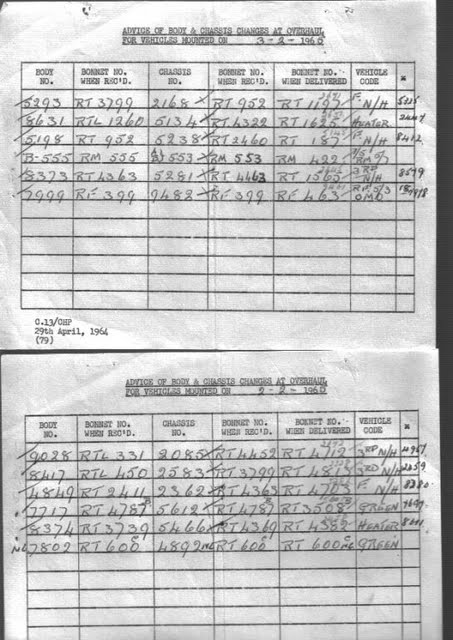 ADVICE OF BODY & CHASSIS CHANGES AT OVERHAUL
FOR VEHICLES MOUNTED ON 3-2-196
BODY NO. BONNET NO. WHEN REC'D. CHASSIS NO. BONNET NO. WHEN REC'D. BONNET NO. WHEN DELIVERED VEHICLE CODE *
5293 RT 3799 2168 RT 952 RT 1197 F N/H
8631 RTL 1260 5134 RT 4322 RT 1625 HEATER
5198 RT 952 5238 RT 2460 RT 187 F N/H 8412
B-555 RM 555 553 RM 553 RM 422 RM
8373 RT 4363 5281 RT 4463 RT 1565 3RD N/H 8579
7999 RF 399 9482 RF 399 RF 463 OMO
C.13/CHP
29th April, 1964
(79)
ADVICE OF BODY & CHASSIS CHANGES AT OVERHAUL
FOR VEHICLES MOUNTED ON 2-2-196
BODY NO. BONNET NO. WHEN REC'D. CHASSIS NO. BONNET NO. WHEN REC'D. BONNET NO. WHEN DELIVERED VEHICLE CODE *
9028 RTL 331 2085 RT 4452 RT 4712 3RD N/H
8417 RTL 450 2583 RT 3799 RT 3RD N/H
4849 RT 2411 2362 RT 4363 RT F N/H 8280
7717 RT 4787 5612 RT 4787 RT 3508 GREEN
8374 RT 3739 5466 RT 4369 RT 4382 HEATER
7802 RT 600 4892 RT 600 RT 600 GREEN